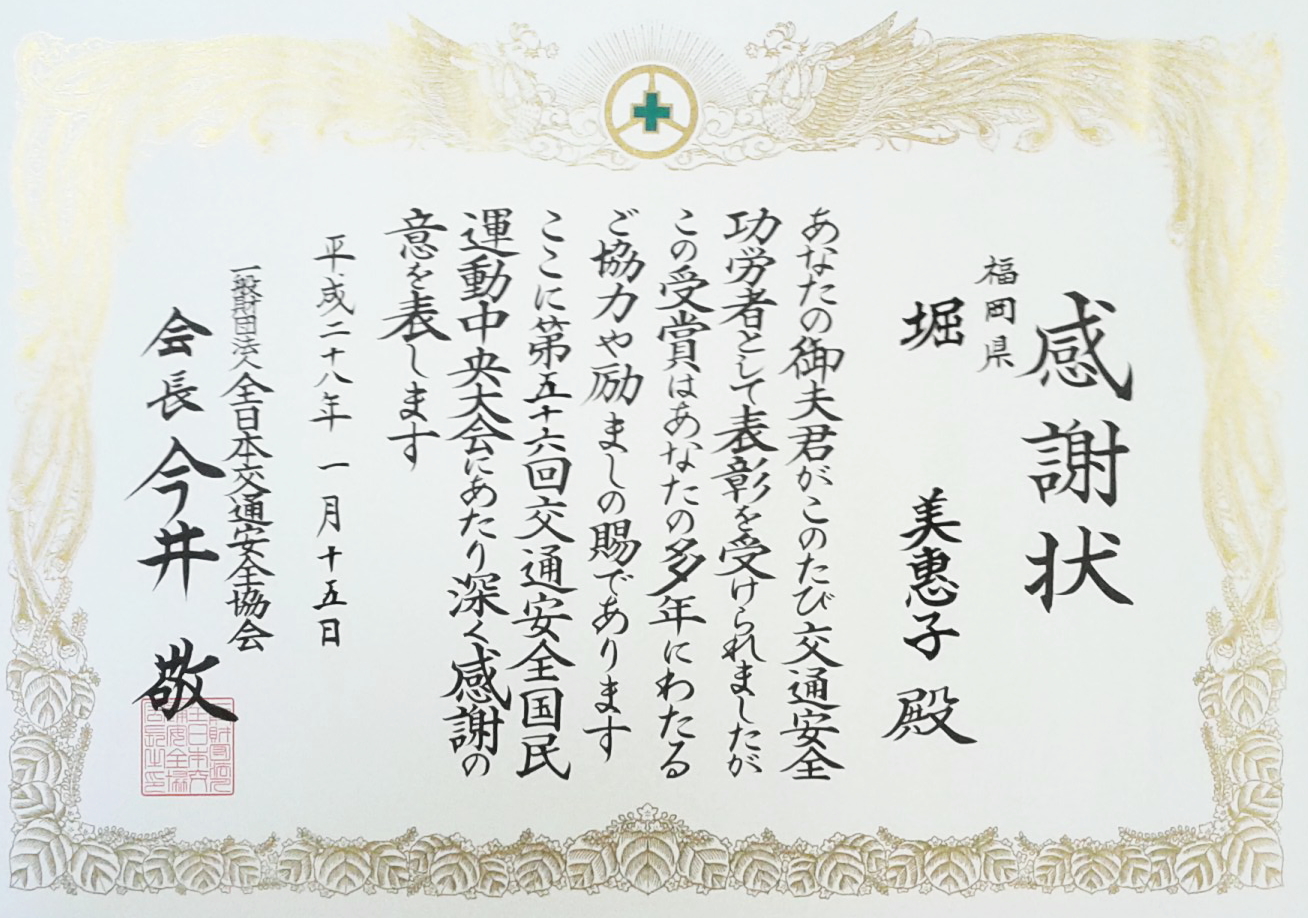 感謝状
福岡県
堀 美恵子 殿
あなたの御夫君がこのたび交通安全
功労者として表彰を受けられましたが
この受賞はあなたの多年にわたる
ご協力や励ましの賜であります
ここに第五十六回交通安全国民
運動中央大会にあたり深く感謝の
意を表します
平成二十八年 一月十五日
一般財団法人全日本交通安全協会
会長 今井 敬